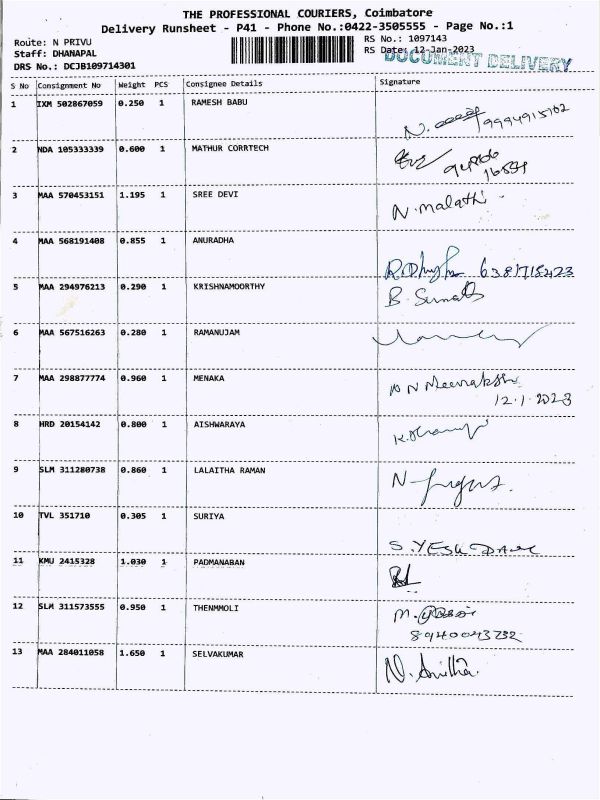 THE PROFESSIONAL COURIERS, Coimbatore
Delivery Runsheet - P41 - Phone No.:0422-3505555 - Page No.:1
Route: N PRIVU
RS No.: 1097143
Staff: DHANAPAL
RS Date: 12-Jan-2023
DOCUMENT DELIVERY
DRS No.: DCJB109714301
S No Consignment No Weight PCS Consignee Details Signature
1 IXM 502867059 0.250 1 RAMESH BABU
N. 9994915702
2 NDA 105333339 0.600 1 MATHUR CORRTECH
3 MAA 570453151 1.195 1 SREE DEVI
N. malathi
4 MAA 568191408 0.855 1 ANURADHA
6381718423
5 MAA 294976213 0.290 1 KRISHNAMOORTHY
B. Sumathi
6 MAA 567516263 0.280 1 RAMANUJAM
7 MAA 298877774 0.960 1 MENAKA
N Meenakshi
12.1.2023
8 HRD 20154142 0.800 1 AISHWARAYA
9 SLM 311280738 0.860 1 LALAITHA RAMAN
10 TVL 351710 0.305 1 SURIYA
11 KMU 2415328 1.030 1 PADMANABAN
12 SLM 311573555 0.950 1 THENMMOLI
M.
8940043732
13 MAA 284011058 1.650 1 SELVAKUMAR
N. Anitha